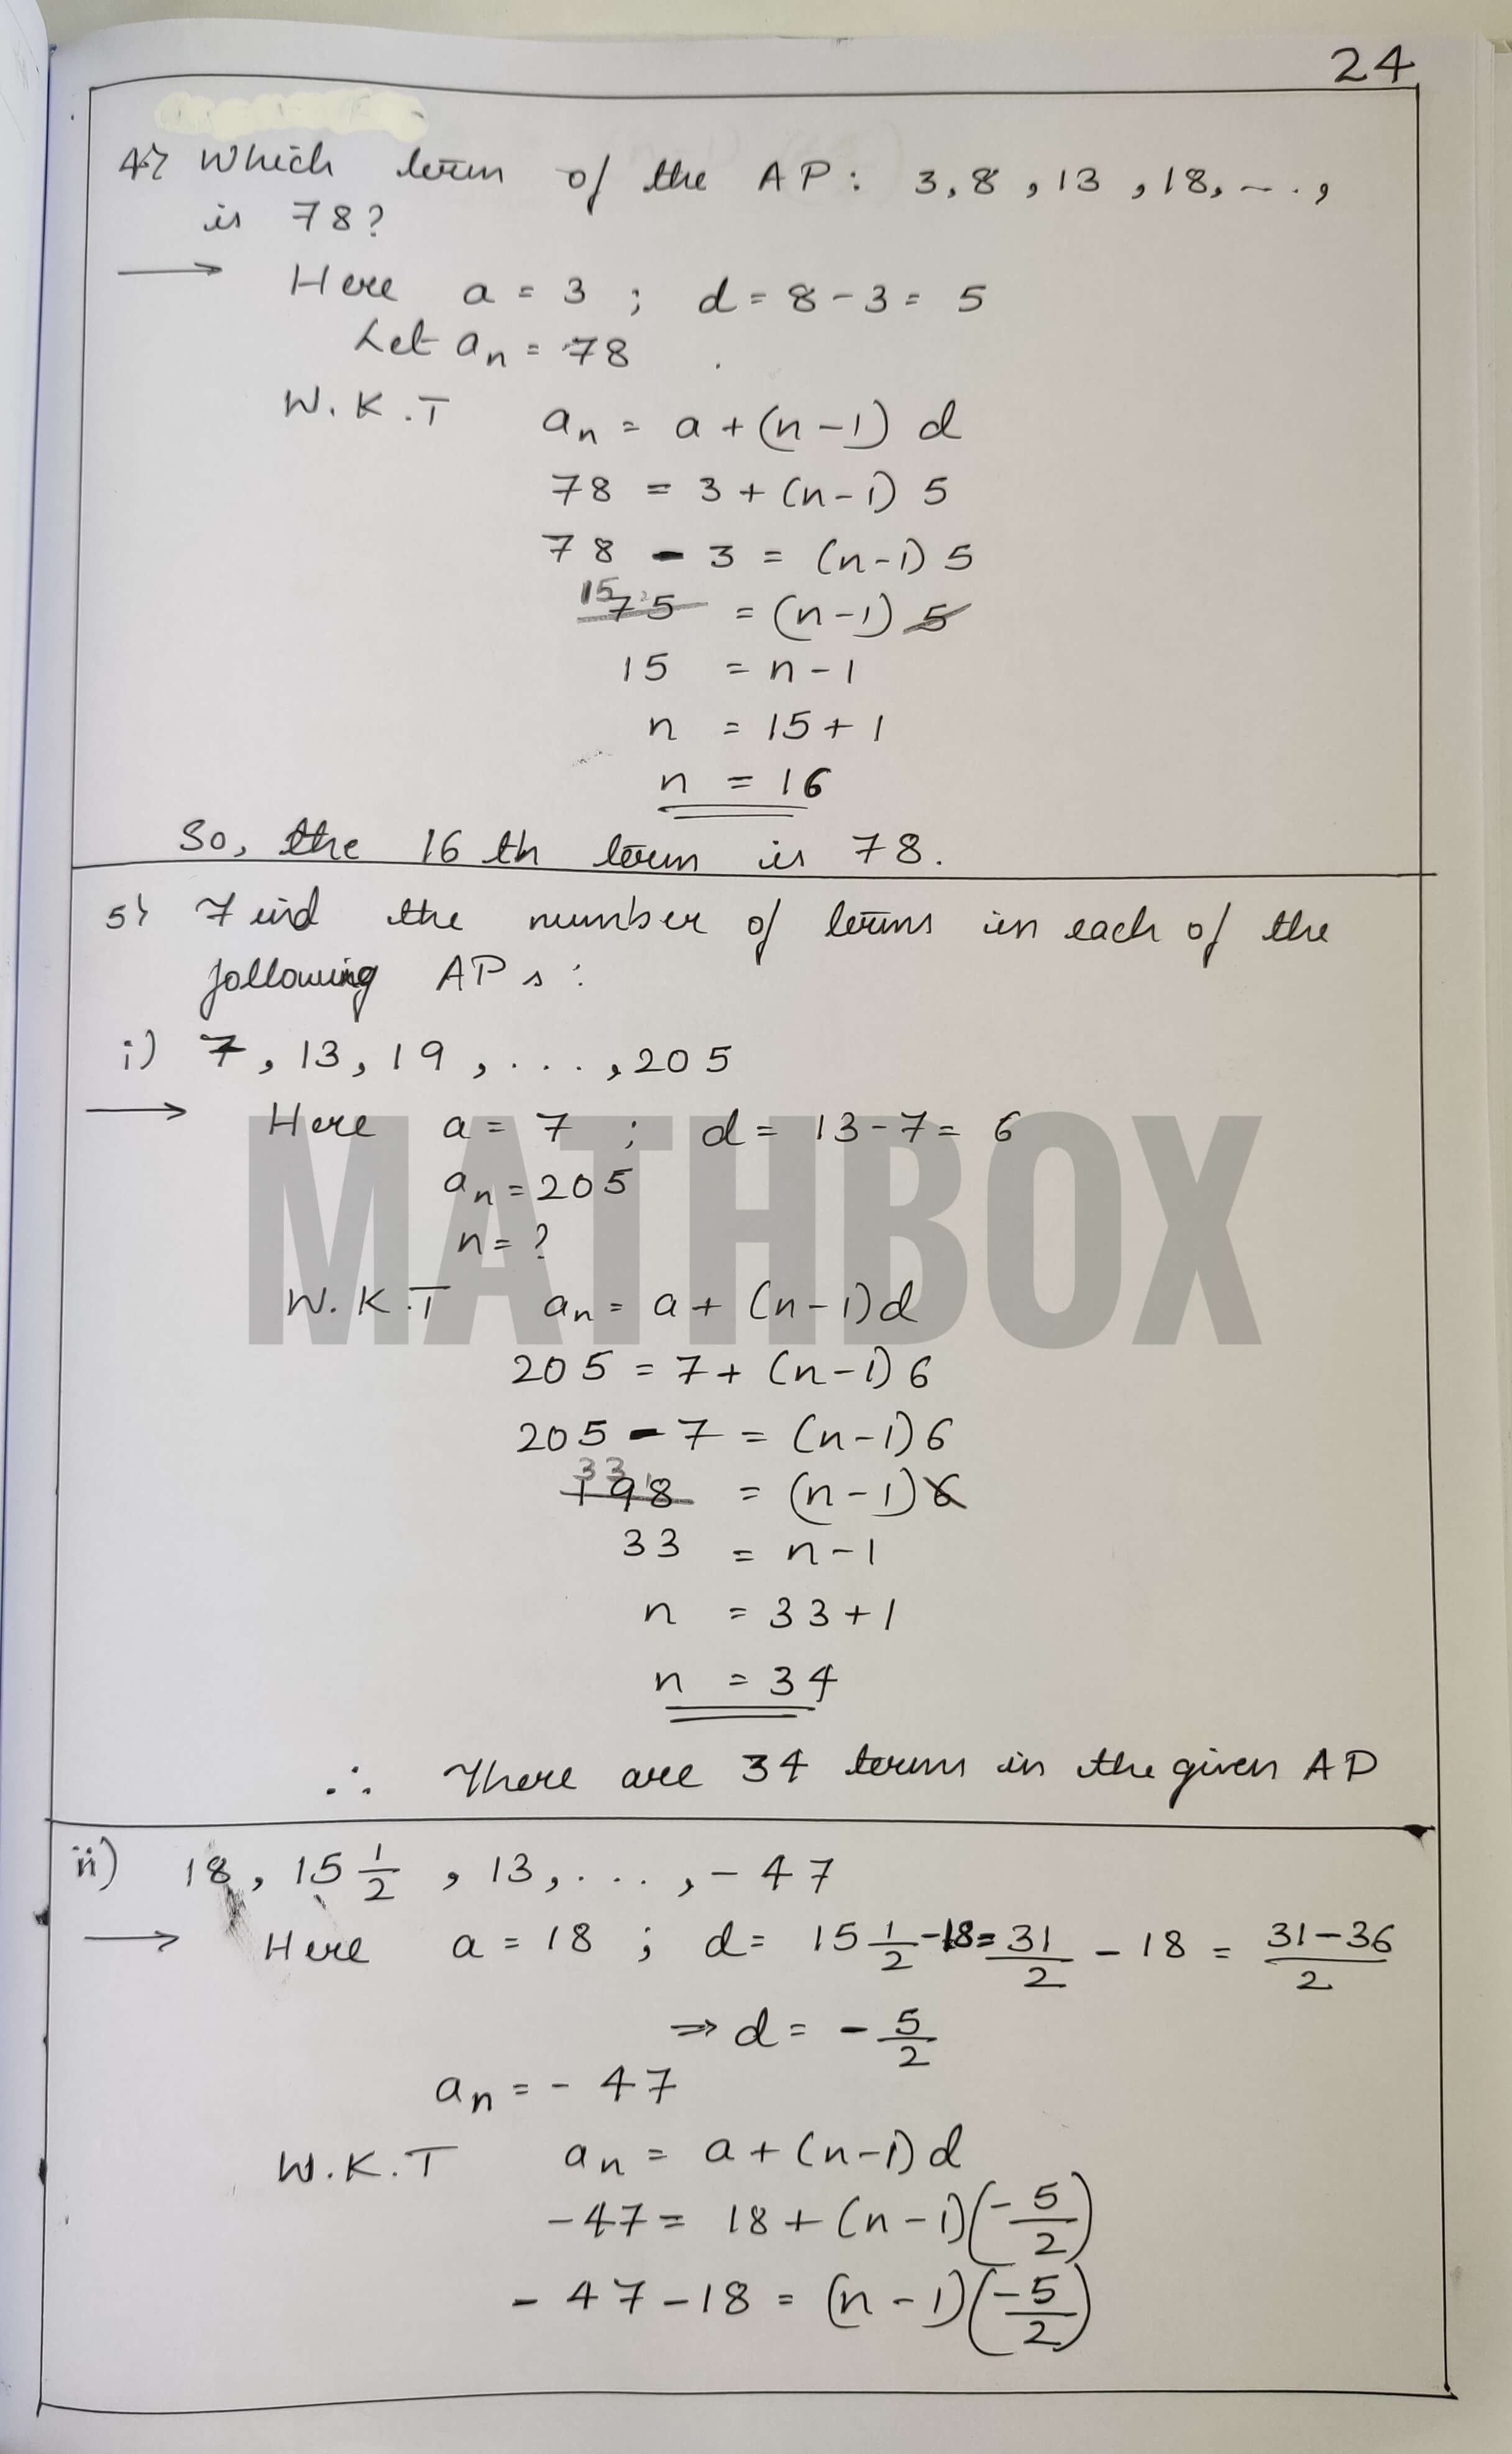 24
4) Which term of the AP: 3, 8, 13, 18, ...,
is 78?
→ Here a = 3 ; d = 8 - 3 = 5
Let aₙ = 78
W.K.T aₙ = a + (n-1) d
78 = 3 + (n-1) 5
78 - 3 = (n-1) 5
15
75 = (n-1) 5
15 = n - 1
n = 15 + 1
n = 16
So, the 16 th term is 78.
5) Find the number of terms in each of the
following APs:
i) 7, 13, 19, ..., 205
→ Here a = 7 ; d = 13 - 7 = 6
aₙ = 205
n = ?
MATHBOX
W.K.T aₙ = a + (n-1)d
205 = 7 + (n-1)6
205 - 7 = (n-1)6
33
198 = (n-1)6
33 = n - 1
n = 33 + 1
n = 34
∴ There are 34 terms in the given AP
ii) 18, 15 1/2, 13, ..., -47
→ Here a = 18 ; d = 15 1/2 - 18 = 31/2 - 18 = (31-36)/2
⇒ d = -5/2
aₙ = -47
W.K.T aₙ = a + (n-1)d
-47 = 18 + (n-1)(-5/2)
-47 - 18 = (n-1)(-5/2)